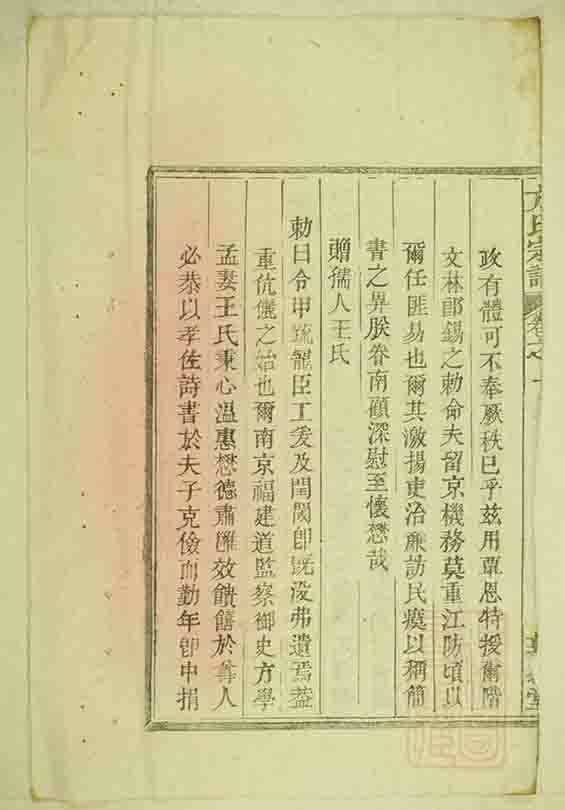 方氏宗譜 卷之一
政有體可不奉厥秩已乎茲用覃恩特授爾階
文林郎錫之勅命夫留京機務莫重江防頃以
爾任匪易也爾其激揚吏治廉訪民瘼以稱簡
書之畀朕眷南顧深慰至懷懋哉
贈孺人王氏
勅曰令甲疏寵臣工爰及閨閫即既没弗遺焉葢
重伉儷之始也爾南京福建道監察御史方學
孟妻王氏秉心溫惠懋德肅雝效饋饎於尊人
必恭以孝佐詩書於夫子克儉而勤年卽中捐